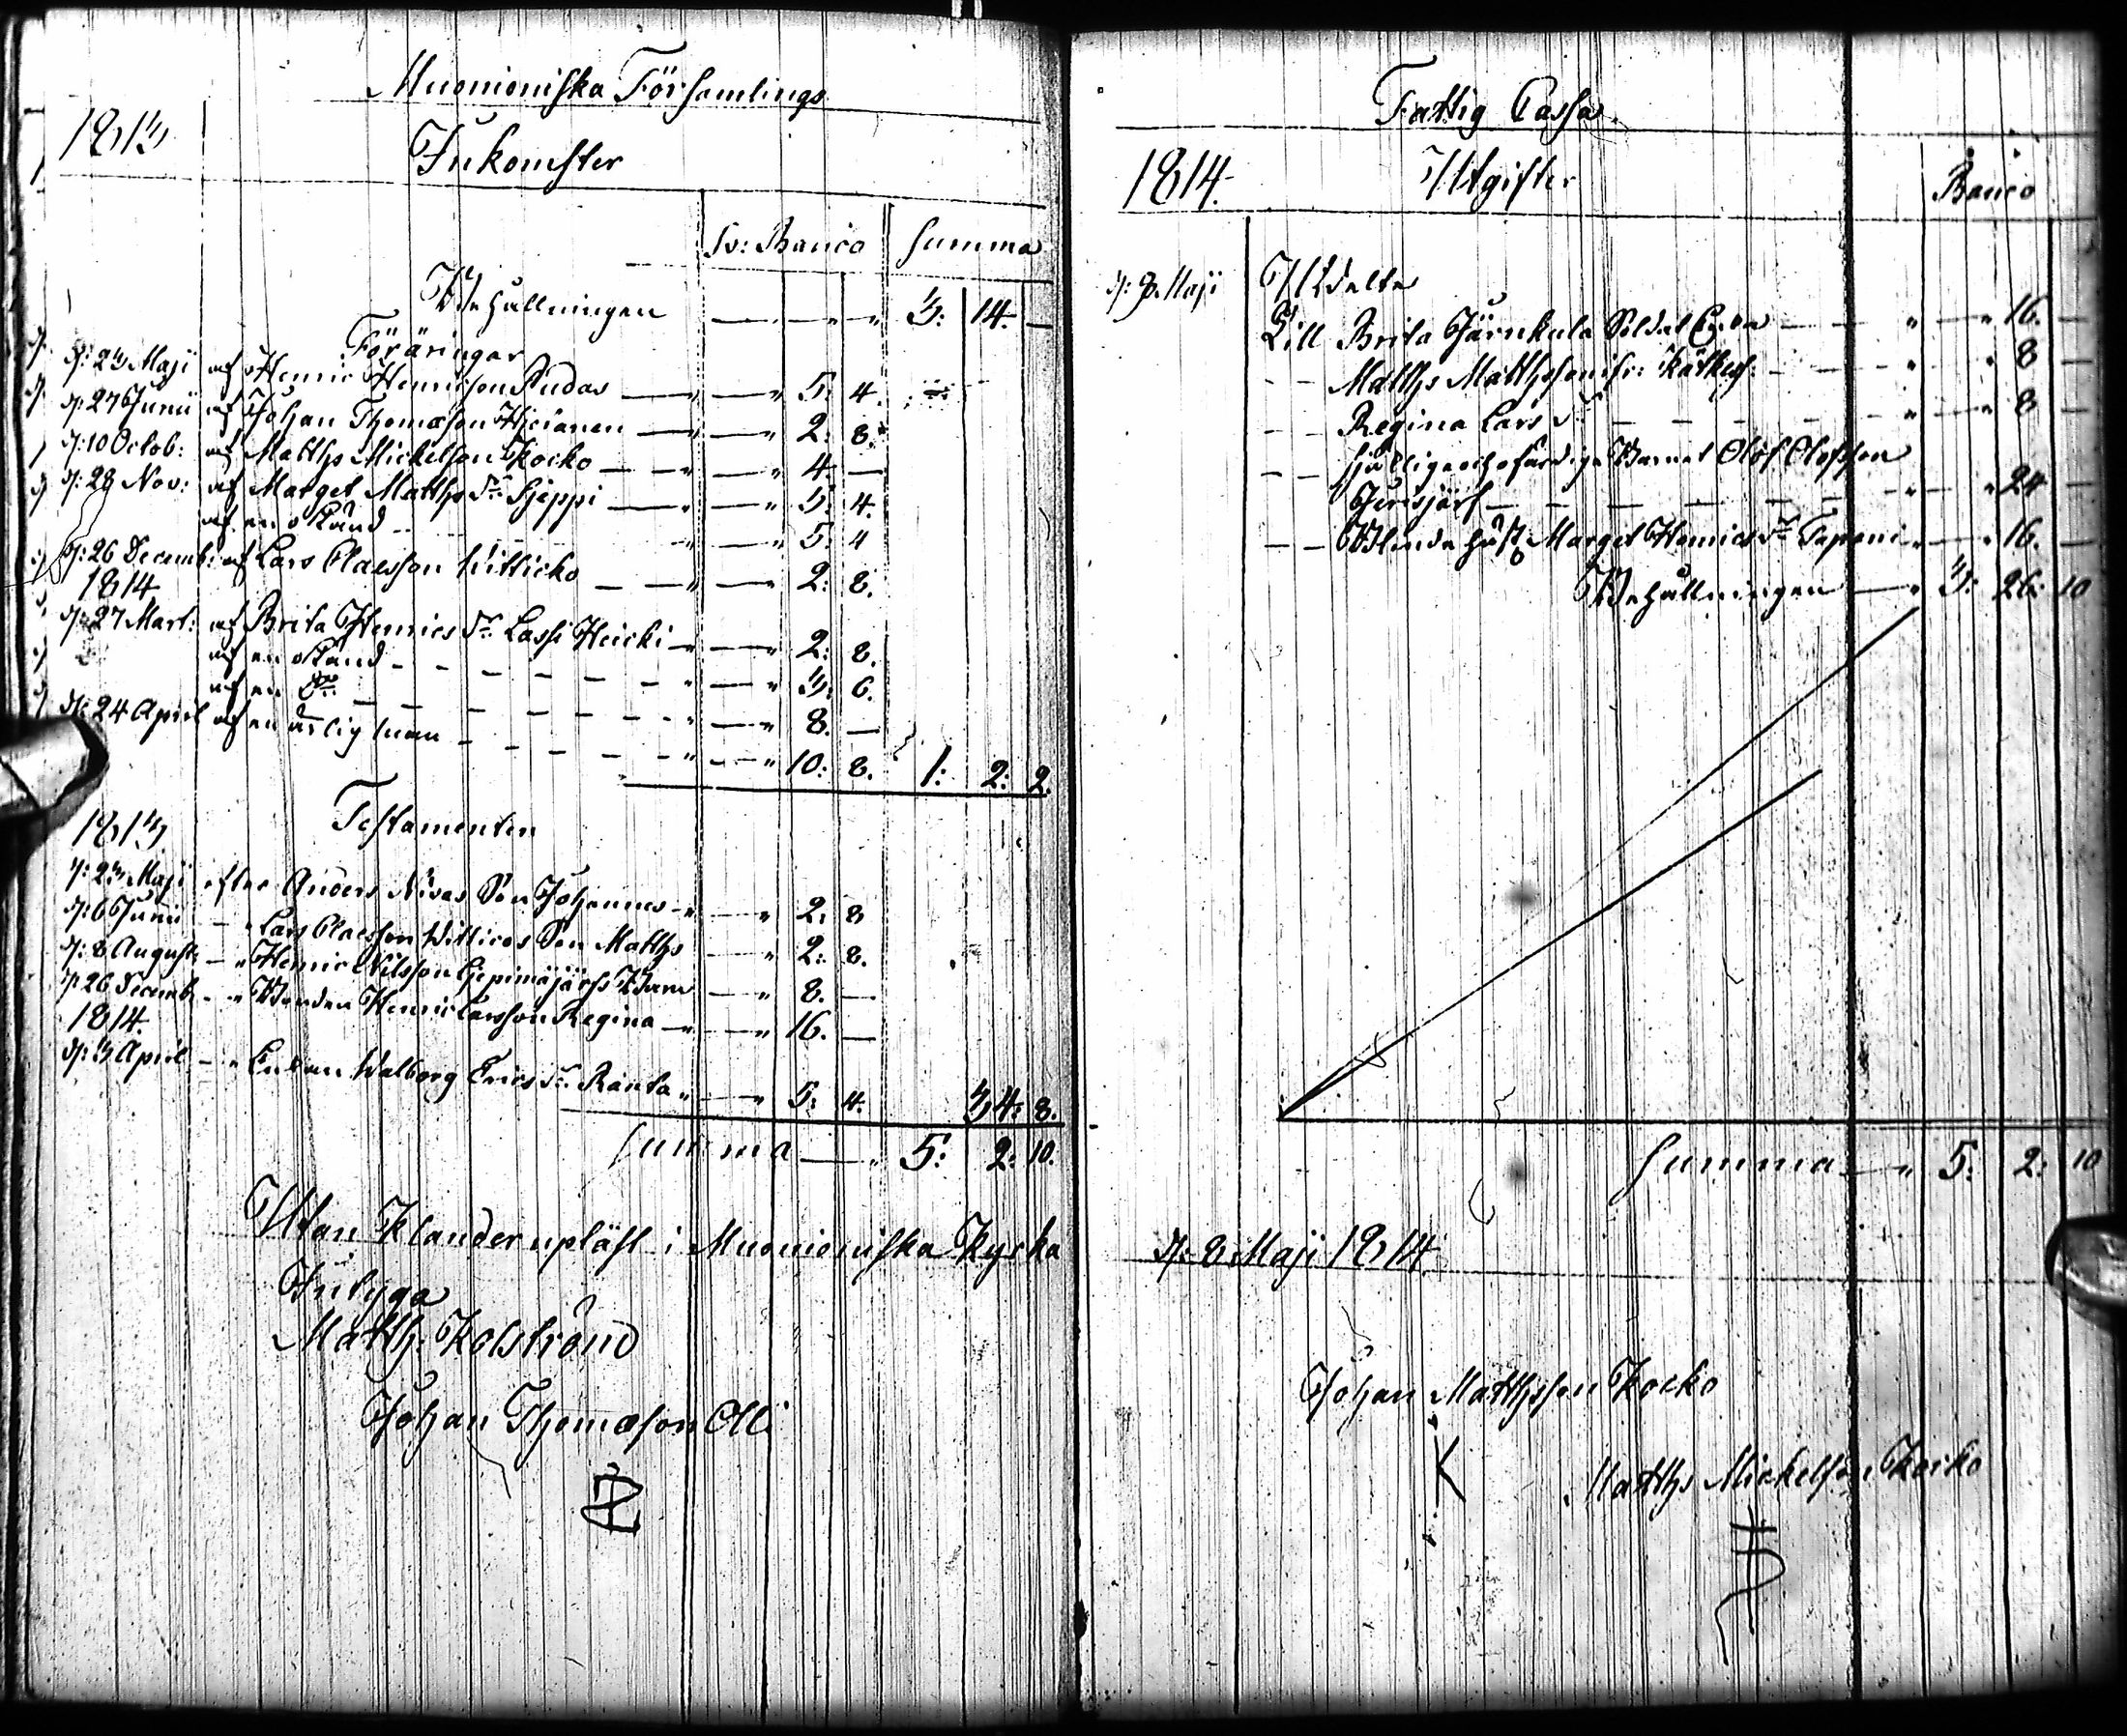 Muonioniska Församlings
1813
Inkomster
Sv: Banco Summa
Behållningen — — " " 3: 14. —
Föräringar
d: 23 Maji af Henric Henricson Rudas — — " 5: 4.
d: 27 Junii af Johan Thomæson Hjeianen — — " 2: 8.
d: 10 Octob: af Matths Mickelson Kocko — — " — " 4. —
d: 28 Nov: af Marget Matths dr Sjeppi — — " 5: 4.
af en okänd — — " 5: 4
d: 26 Decemb: af Lars Claesson Witticko — — " — " 2: 8.
1814
d: 27 Mart: af Brita Henrics dr Lassi Heicki — " — " 2: 8.
af en okänd — — — — " — " 3: 6.
af en do — — — — " — " 8. —
d: 24 April af en ärlig man — — — — " — " 10: 8. 1: 2: 2.
1813. Testamenten
d: 23 Maji efter Anders Nivas Son Johannes — " — " 2: 8
d: 6 Junii — " Lars Claesson Witticos Son Matths — " 2: 8.
d: 8 August: — " Henric Nilsson Barn — " 8. —
d: 26 Decemb: — " Bonden Henric Larsson Regina — " — " 16. —
1814.
d: 3 April — " Enkan Walborg Erics dr Ranta " — " 5: 4. 34: 8.
Summa — " 5: 2: 10.
Utan Klander upläst i Muonioniska Kyrka
Intyga
Matth: Kolström
Johan Thomæson Olli
Fattig Cassa
1814. Utgifter Banco
d: 8 Maji Utdelte
Till Brita Järnkula Soldat Enka — — " — " 16. —
— — Matths Matthsson Kätkes: — — " " 8 —
— — Regina Lars dr — — — — " — " 8 —
— — Barnet Olof Olofsson
Jerisjärf — — — — " — " 24 —
— — Blinda Marget Henrics dr Tapani — " — " 16. —
Behållningen — " 3: 26: 10
Summa — " 5: 2: 10
d: 8 Maji 1814.
Johan Matthsson Kocko
K
Matths Mickelson Kocko